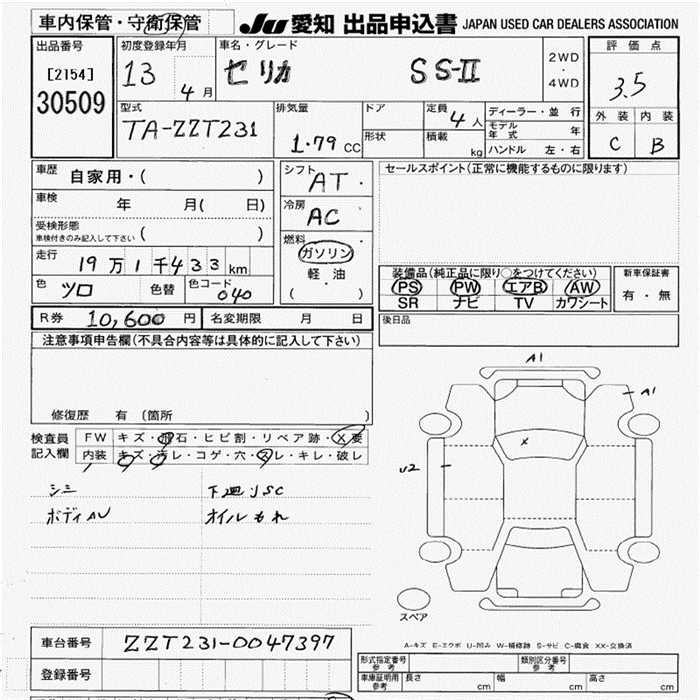 車内保管・守衛保管
JU 愛知 出品申込書 JAPAN USED CAR DEALERS ASSOCIATION
出品番号
[2154]
30509
初度登録年月
13 4月
車名・グレード
セリカ SS-II
2WD
・
4WD
評価点
3.5
外装 内装
C B
型式
TA-ZZT231
排気量
1.79 CC
ドア
形状
定員
4人
積載
kg
ディーラー・並行
モデル年式 年
ハンドル 左・右
車歴
自家用・( )
車検 年 月( 日)
受検形態
車検付きのみ記入して下さい ( )
走行
19万1千433km
色 ツロ 色替 色コード 040
シフト
AT
冷房
AC
燃料
ガソリン
・
軽油
( )
セールスポイント(正常に機能するものに限ります)
装備品(純正品に限り○をつけてください)
PS PW エアB AW
SR ナビ TV カワシート
新車保証書
有・無
R券 10,600円 名変期限 月 日
後日品
注意事項申告欄(不具合内容等は具体的に記入して下さい)
修復歴 有(箇所 )
検査員
記入欄
FW キズ・飛石・ヒビ割・リペア跡・X要
内装 キズ・汚レ・コゲ・穴・スレ・キレ・破レ
シミ 下廻りSC
ボディAU オイルもれ
A1
A1
X
U2
スペア
車台番号 ZZT231-0047397
登録番号
A-キズ E-エクボ U-凹み W-補修跡 S-サビ C-腐食 XX-交換済
形式指定番号
参考
類別区分番号
参考
車庫証明用
参考
長さ cm 幅 cm 高さ cm